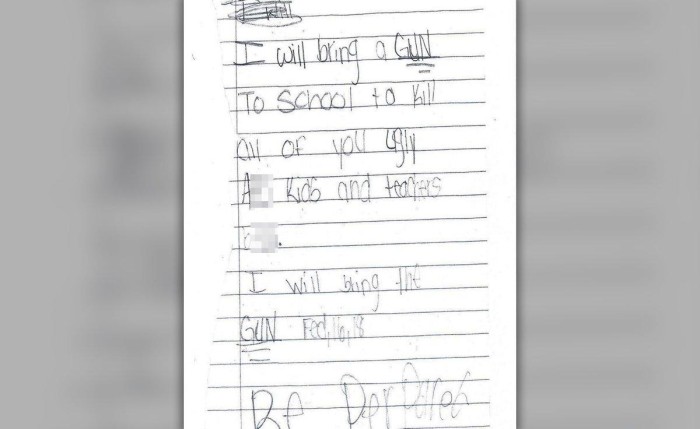 Kill
I will bring a GUN
To School to kill
all of you ugly
A Kids and teachers
.
I will bring the
GUN Feb,16,18
Be